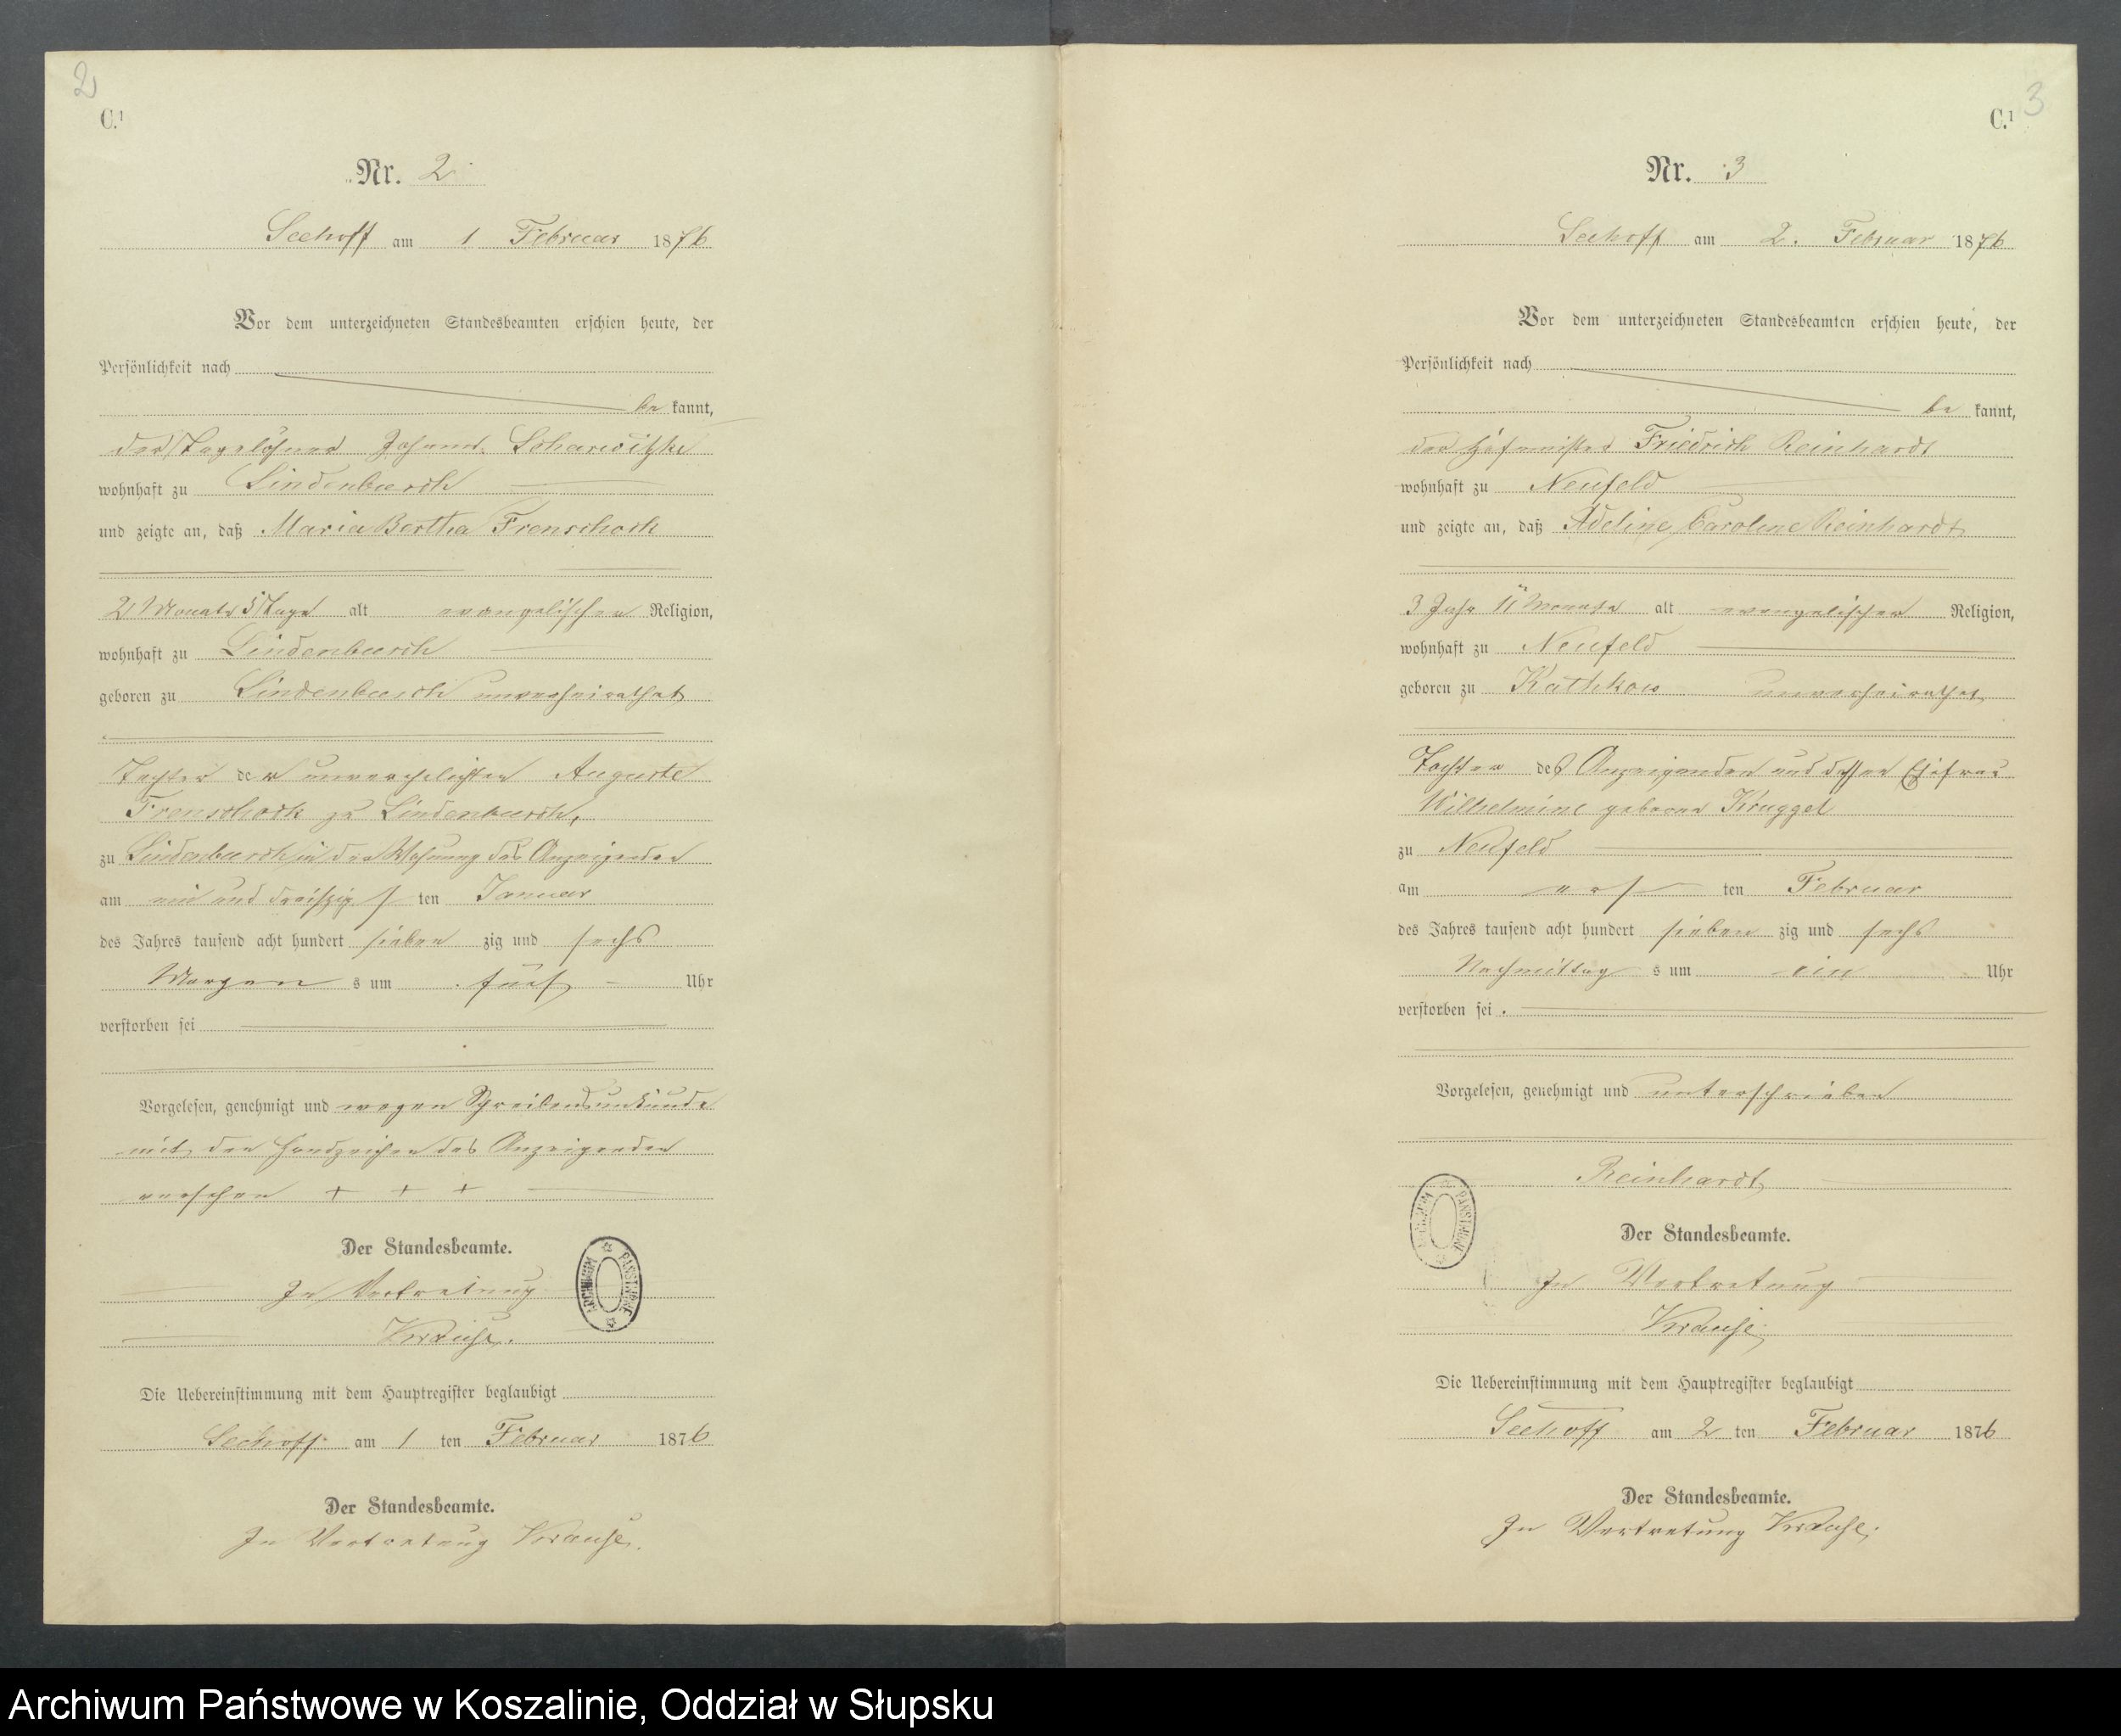 2
C.¹
Nr. 2
Seehoff am 1 Februar 1876
Vor dem unterzeichneten Standesbeamten erschien heute, der
Persönlichkeit nach
be kannt,
der Tagelöhner Johann
wohnhaft zu Lindenbusch
und zeigte an, daß Maria Bertha Frenschock
2 Monate 5 Tage alt evangelischer Religion,
wohnhaft zu Lindenbusch
geboren zu Lindenbusch unverheirathet
Tochter der unverehelichten Auguste
Frenschock zu Lindenbusch,
zu Lindenbusch in der Wohnung des Anzeigenden
am ein und dreißigsten Januar
des Jahres tausend acht hundert sieben zig und sechs
Morgen s um fünf Uhr
verstorben sei
Vorgelesen, genehmigt und wegen Schreibensunkunde
mit den Handzeichen des Anzeigenden
versehen + + +
Der Standesbeamte.
In Vertretung
Krause.
ARCHIWUM PAŃSTWOWE
Die Uebereinstimmung mit dem Hauptregister beglaubigt
Seehoff am 1 ten Februar 1876
Der Standesbeamte.
In Vertretung Krause.
3
C.¹
Nr. 3
Seehoff am 2. Februar 1876
Vor dem unterzeichneten Standesbeamten erschien heute, der
Persönlichkeit nach
be kannt,
der Hofmeister Friedrich Reinhardt
wohnhaft zu Neufeld
und zeigte an, daß Adeline Caroline Reinhardt
3 Jahr 11 Monate alt evangelischer Religion,
wohnhaft zu Neufeld
geboren zu Kathkow unverheirathet
Tochter des Anzeigenden und dessen Ehefrau
Wilhelmine geborne Kruggel
zu Neufeld
am ers ten Februar
des Jahres tausend acht hundert sieben zig und sechs
Nachmittag s um ein Uhr
verstorben sei.
Vorgelesen, genehmigt und unterschrieben
Reinhardt
ARCHIWUM PAŃSTWOWE
Der Standesbeamte.
In Vertretung
Krause
Die Uebereinstimmung mit dem Hauptregister beglaubigt
Seehoff am 2 ten Februar 1876
Der Standesbeamte.
In Vertretung Krause.
Archiwum Państwowe w Koszalinie, Oddział w Słupsku